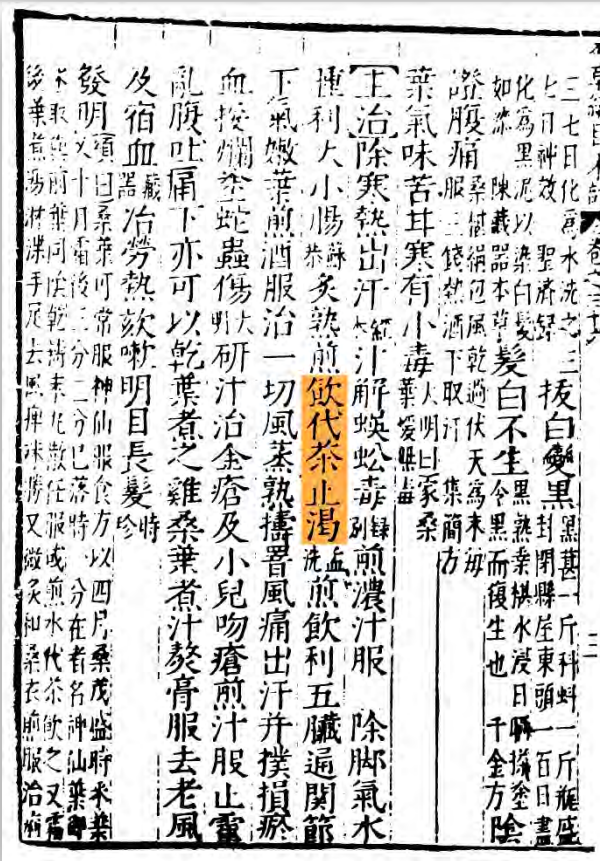 三七日化為水洗之三七日神效 聖濟録 拔白變黑 黑葚一斤科蚪一斤瓶盛封閉懸屋東頭一百日盡
化為黑泥以染白髮如漆 陳藏器本草 髮白不生 黑熟桑椹水浸日曬搽塗令黑而復生也 千金方 陰
證腹痛 桑椹絹包風乾過伏天為末每服三錢熱酒下取汗 集簡方
葉氣味苦甘寒有小毒 大明曰家桑葉煖無毒
【主治】除寒熱出汗 本經 汁解蜈蚣毒 别録 煎濃汁服 除脚氣水
腫利大小腸 蘇恭 炙熟煎飲代茶止渴 孟詵 煎飲利五臟通關節
下氣嫩葉煎酒服治一切風蒸熟擣罯風痛出汗并撲損瘀
血挼爛塗蛇蟲傷 大明 研汁治金瘡及小兒吻瘡煎汁服止霍
亂腹吐痛下亦可以乾葉煮之雞桑葉煮汁熬膏服去老風
及宿血 藏器 治勞熱欬嗽明目長髮 時珍
發明 頌曰桑葉可常服神仙服食方以四月桑茂盛時采葉又十月霜後三分二分已落時一分在者名神仙葉即
采取與前葉同陰乾擣末丸散任服或煎水代茶飲之又霜後葉煮湯淋渫手足去風痺殊勝又微炙和桑衣煎服治痢